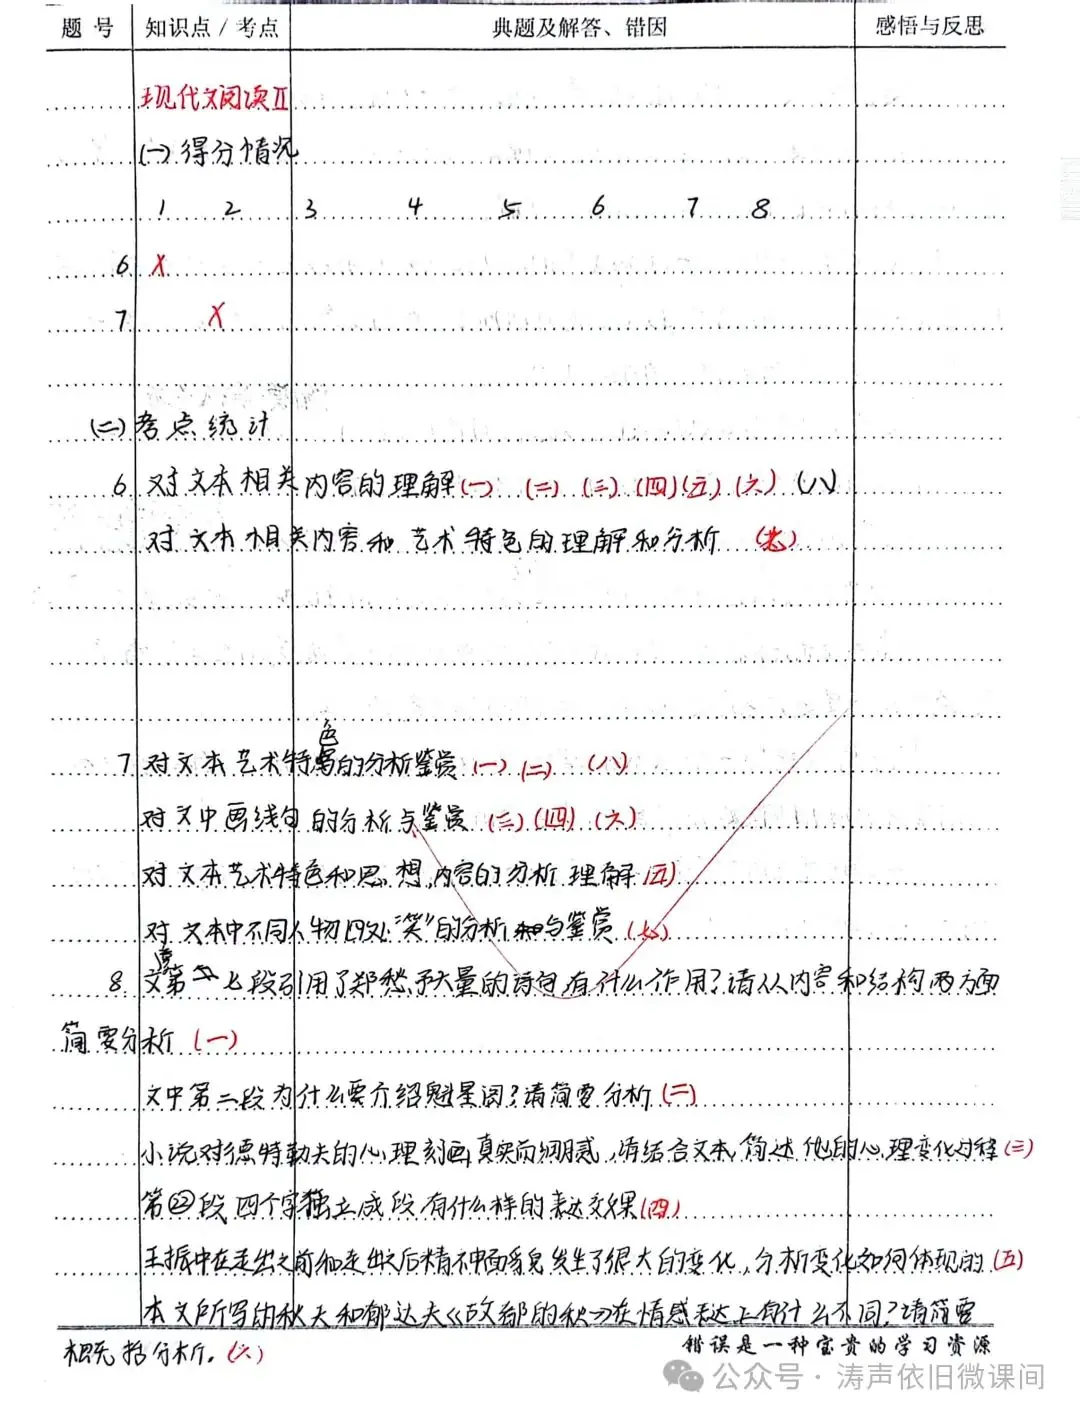 题 号 知识点 / 考点 典题及解答、错因 感悟与反思
现代文阅读Ⅱ
(一) 得分情况
1 2 3 4 5 6 7 8
6 X
7 X
(二) 考点统计
6 对文本相关内容的理解 (一) (二) (三) (四) (五) (六) (八)
对文本相关内容和艺术特色的理解和分析 (七)
色
7 对文本艺术特的分析鉴赏 (一) (二) (八)
对文中画线句的分析与鉴赏 (三) (四) (六)
对文本艺术特色和思想内容的分析理解 (五)
对文本中不同人物四处“笑”的分析与鉴赏 (七)
8 文章第七段引用了郑愁予大量的诗句有什么作用?请从内容和结构两方面
简要分析 (一)
文中第二段为什么要介绍魁星阁?请简要分析 (二)
小说对德特勒夫的心理刻画真实而细腻,请结合文本简述他的心理变化过程 (三)
第②段四个字独立成段有什么样的表达效果 (四)
王振中在走出之前和走出之后精神面貌发生了很大的变化,分析变化如何体现的 (五)
本文所写的秋天和郁达夫《故都的秋》在情感表达上有什么不同?请简要
概括分析。(六)
错误是一种宝贵的学习资源
公众号·涛声依旧微课间